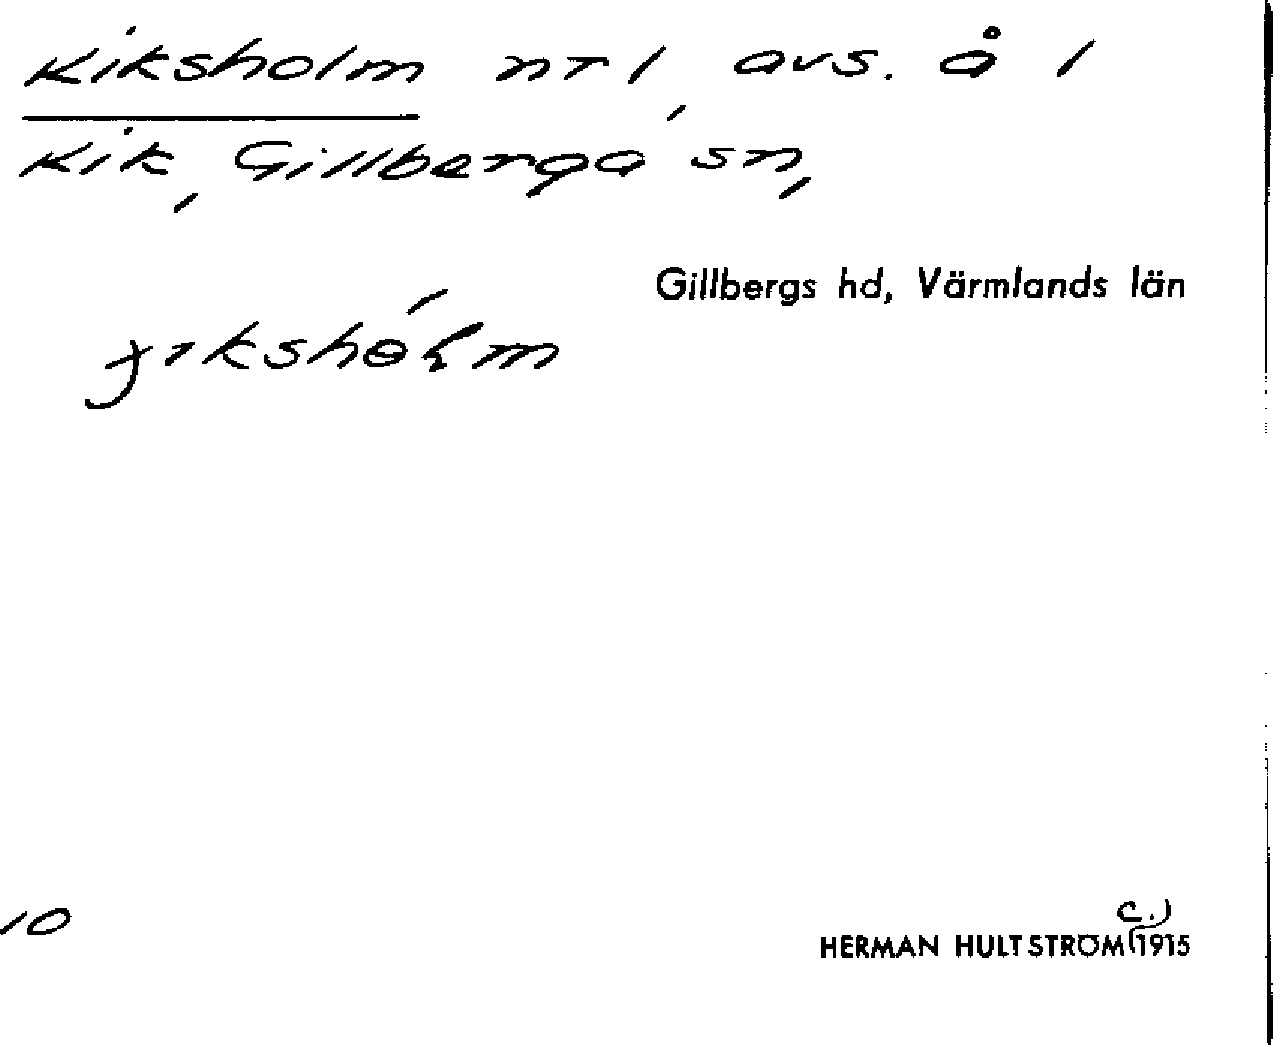 Kiksholm nr 1, avs. å 1
Kik, Gillberga sn,
Gillbergs hd, Värmlands län
10
c.)
HERMAN HULTSTRÖM 1915